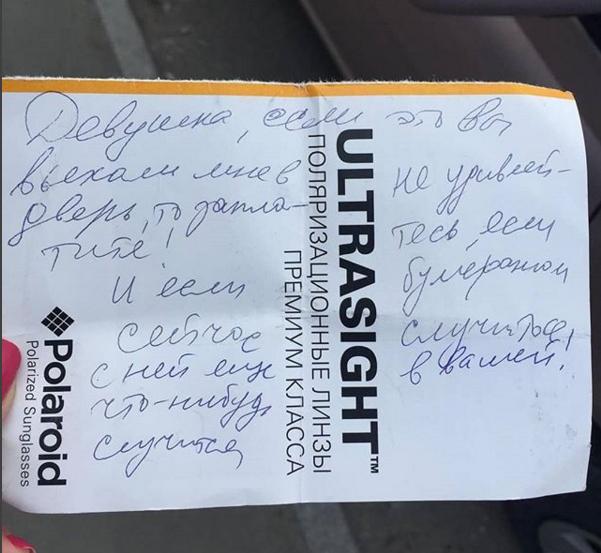 Девушка, если это Вы
въехали мне в
дверь, то запла-
тите!
И если
сейчас
с ней еще
что-нибудь
случится,
не удивляй-
тесь, если
бумерангом
случится
в вашей!
ULTRASIGHT™
ПОЛЯРИЗАЦИОННЫЕ ЛИНЗЫ
ПРЕМИУМ КЛАССА
Polaroid
Polarized Sunglasses